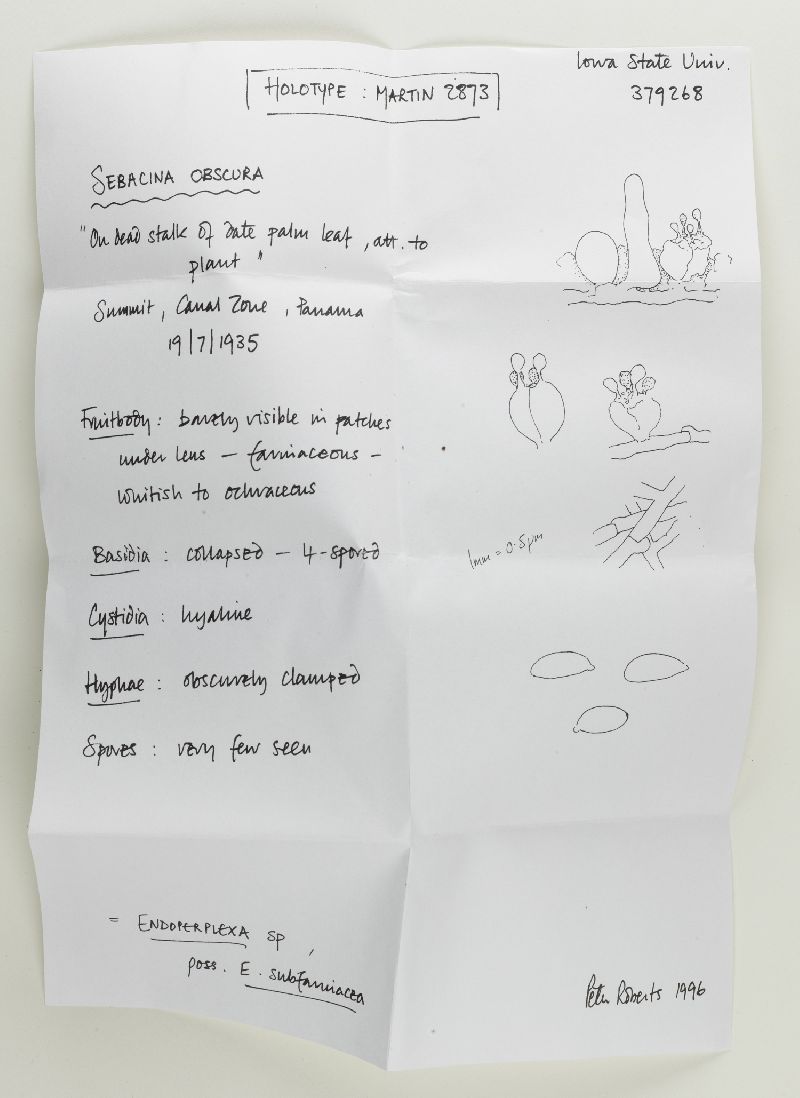 Iowa State Univ.
379268
HOLOTYPE : MARTIN 2873
SEBACINA OBSCURA
"On dead stalk of date palm leaf, att. to
plant"
Summit, Canal Zone, Panama
19/7/1935
Fruitbody : barely visible in patches
under lens – farinaceous –
whitish to ochraceous
Basidia : collapsed – 4-spored
1mm = 0.5µm
Cystidia : hyaline
Hyphae : obscurely clamped
Spores : very few seen
= ENDOPERPLEXA sp,
poss. E. subfarinacea
Peter Roberts 1996